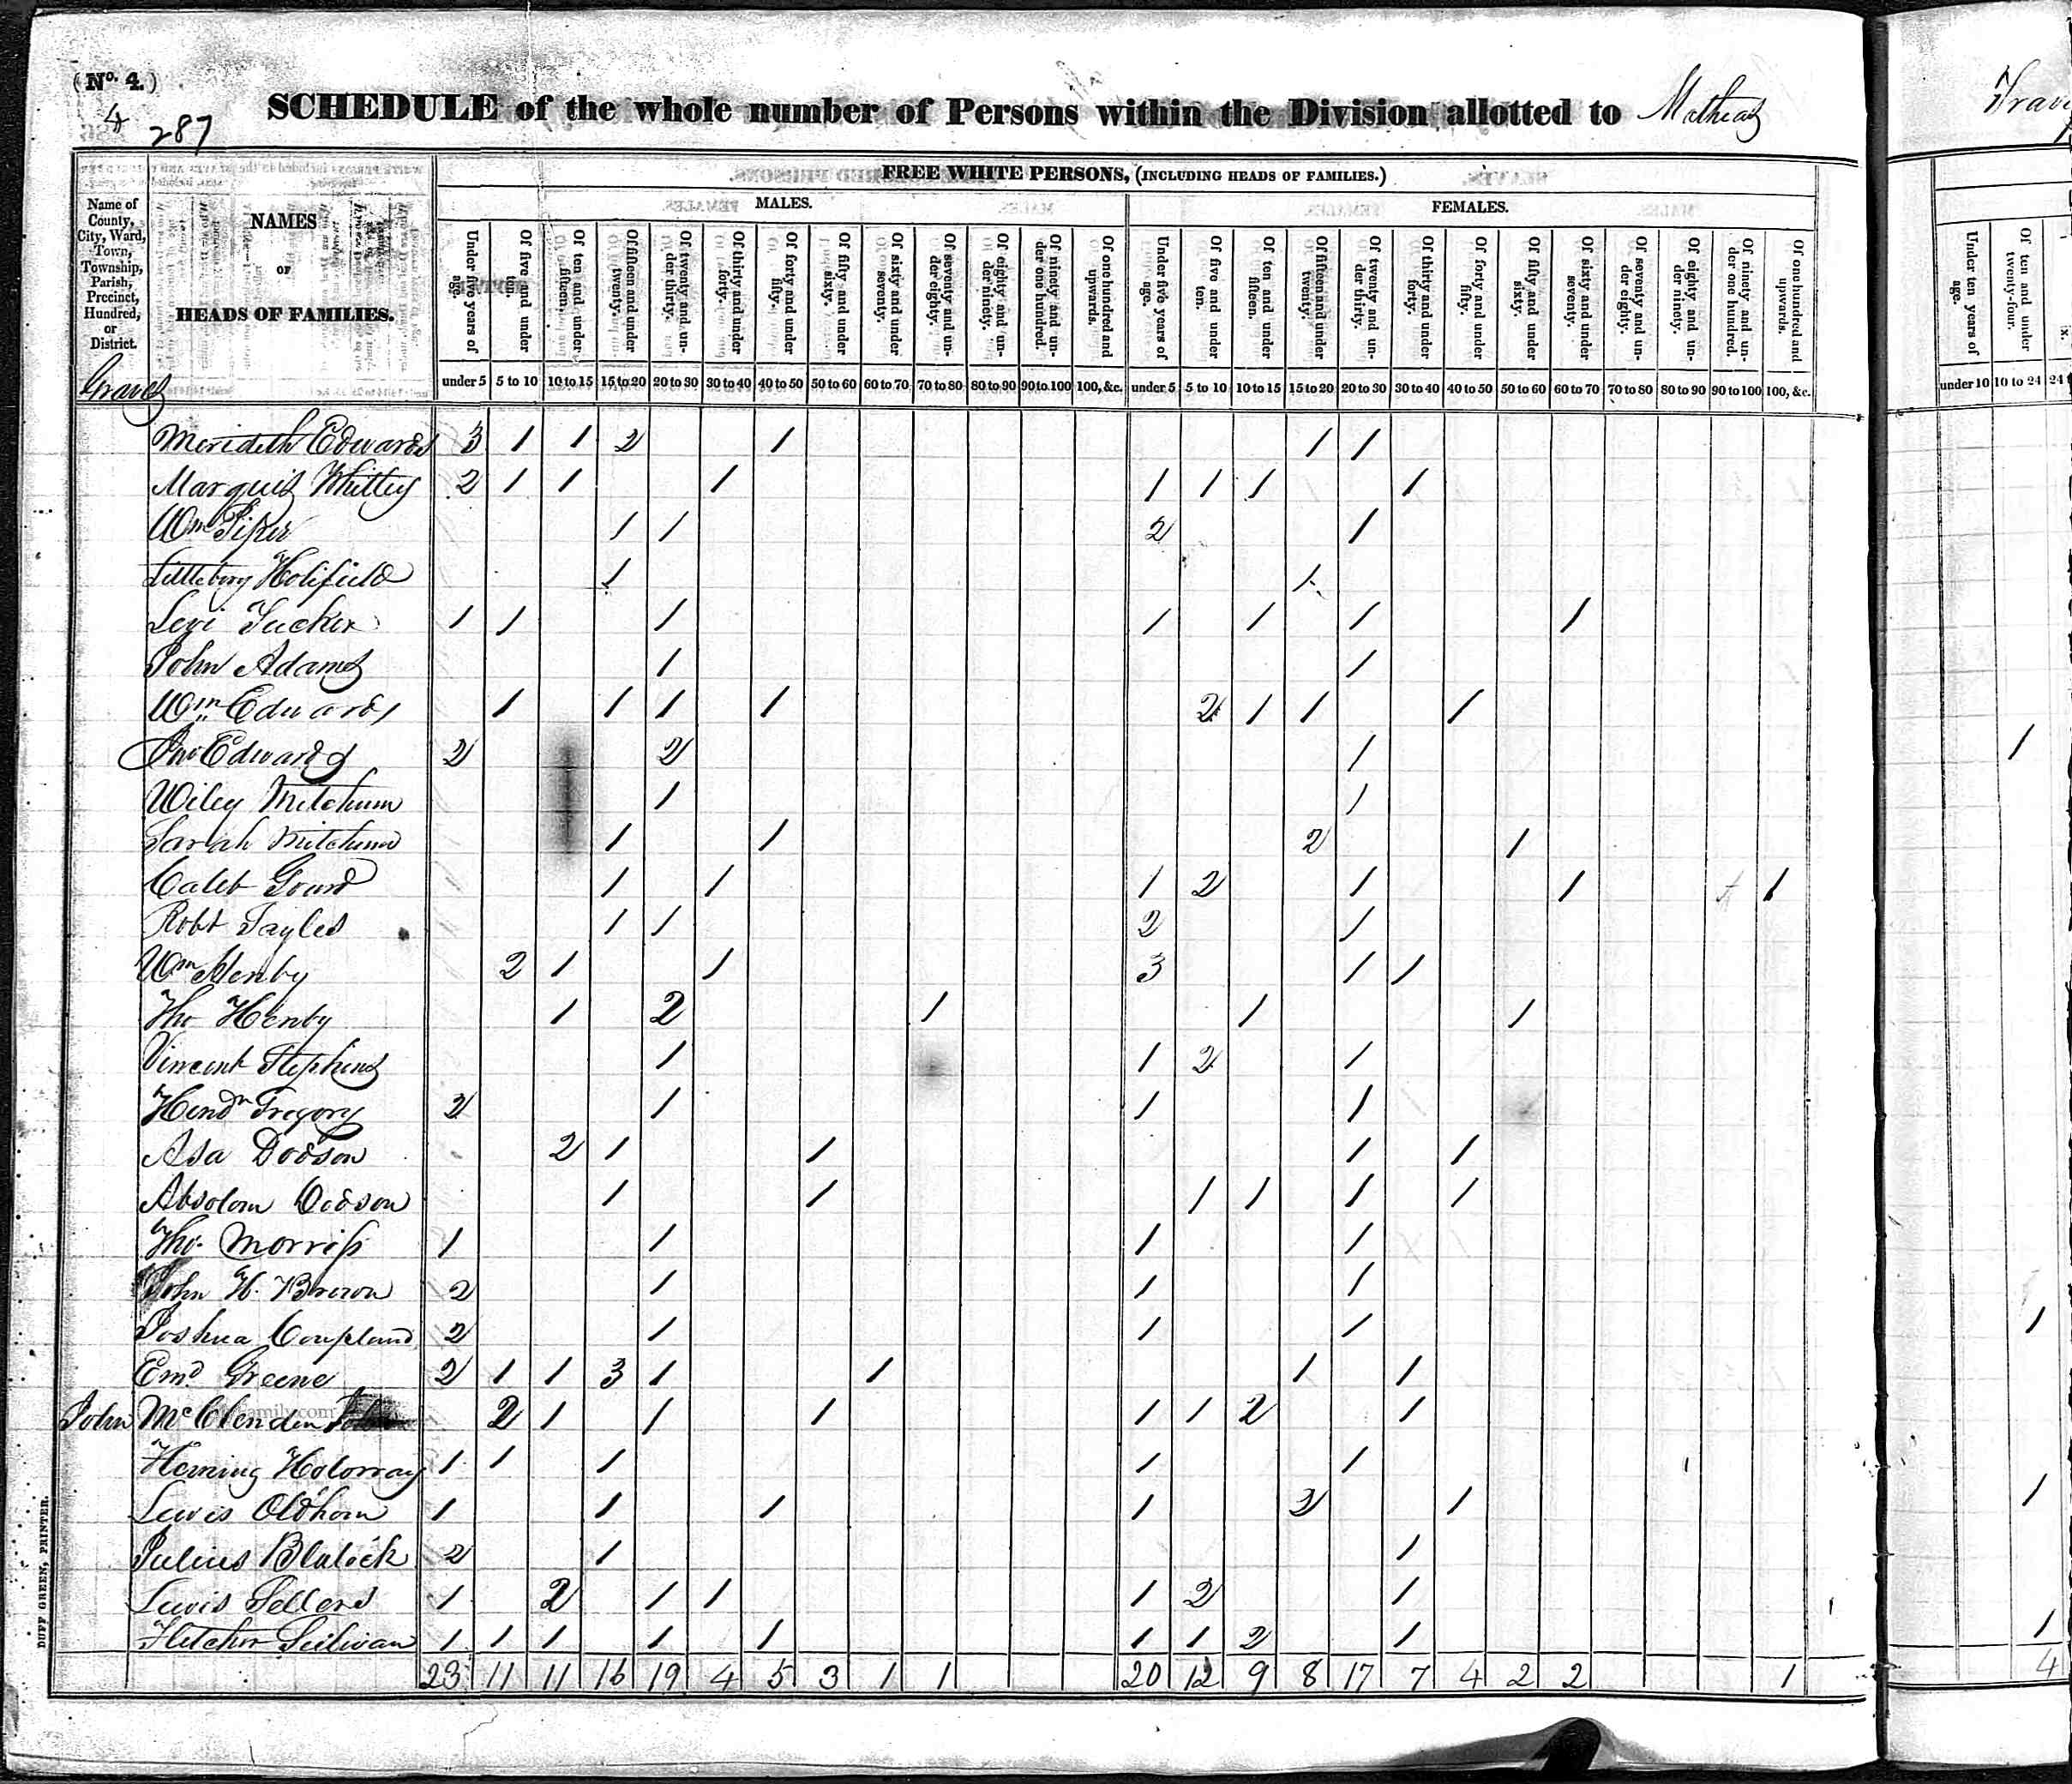 (No. 4.)
4
287
SCHEDULE of the whole number of Persons within the Division allotted to Mathias
FREE WHITE PERSONS, (INCLUDING HEADS OF FAMILIES.)
MALES. FEMALES.
Name of County, City, Ward, Town, Township, Parish, Precinct, Hundred, or District.
NAMES
OF
HEADS OF FAMILIES.
Under five years of age. Of five and under ten. Of ten and under fifteen. Of fifteen and under twenty. Of twenty and under thirty. Of thirty and under forty. Of forty and under fifty. Of fifty and under sixty. Of sixty and under seventy. Of seventy and under eighty. Of eighty and under ninety. Of ninety and under one hundred. Of one hundred and upwards. Under five years of age. Of five and under ten. Of ten and under fifteen. Of fifteen and under twenty. Of twenty and under thirty. Of thirty and under forty. Of forty and under fifty. Of fifty and under sixty. Of sixty and under seventy. Of seventy and under eighty. Of eighty and under ninety. Of ninety and under one hundred. Of one hundred and upwards. Under ten years of age. Of ten and under twenty-four.
under 5 5 to 10 10 to 15 15 to 20 20 to 30 30 to 40 40 to 50 50 to 60 60 to 70 70 to 80 80 to 90 90 to 100 100, &c. under 5 5 to 10 10 to 15 15 to 20 20 to 30 30 to 40 40 to 50 50 to 60 60 to 70 70 to 80 80 to 90 90 to 100 100, &c. under 10 10 to 24 24
Graves
Merideth Edwards 3 1 1 2 1 1 1
Marquis Whitley 2 1 1 1 1 1 1 1
Wm Piper 1 1 2 1
Littlebery Holifield 1 1
Levi Tucker 1 1 1 1 1 1 1
John Adams 1 1
Wm Edwards 1 1 1 1 2 1 1 1
Jno Edwards 2 2 1 1
Wiley Mitchum 1 1
Sarah Mitchum 1 1 2 1
Caleb Gourd 1 1 1 2 1 1 1
Robt Sayles 1 1 2 1
Wm Henby 2 1 1 3 1 1
Tho Henby 1 2 1 1 1
Vincent Stephens 1 1 2 1
Hendn Gregory 2 1 1 1
Asa Dodson 2 1 1 1 1
Absolom Dodson 1 1 1 1 1 1
Tho. Morriss 1 1 1 1
John H. Brown 2 1 1 1
Joshua Coupland 2 1 1 1 1
Emd Greene 2 1 1 3 1 1 1 1
John McClenden 2 1 1 1 1 1 2 1
Fleming Holorray 1 1 1 1 1
Lewis Oldham 1 1 1 1 2 1 1
Julius Blalock 2 1 1
Lewis Sellers 1 2 1 1 1 2 1
Fletcher Sulivan 1 1 1 1 1 1 1 2 1 1
23 11 11 16 19 4 5 3 1 1 20 12 9 8 17 7 4 2 2 1 4
DUFF GREEN, PRINTER.